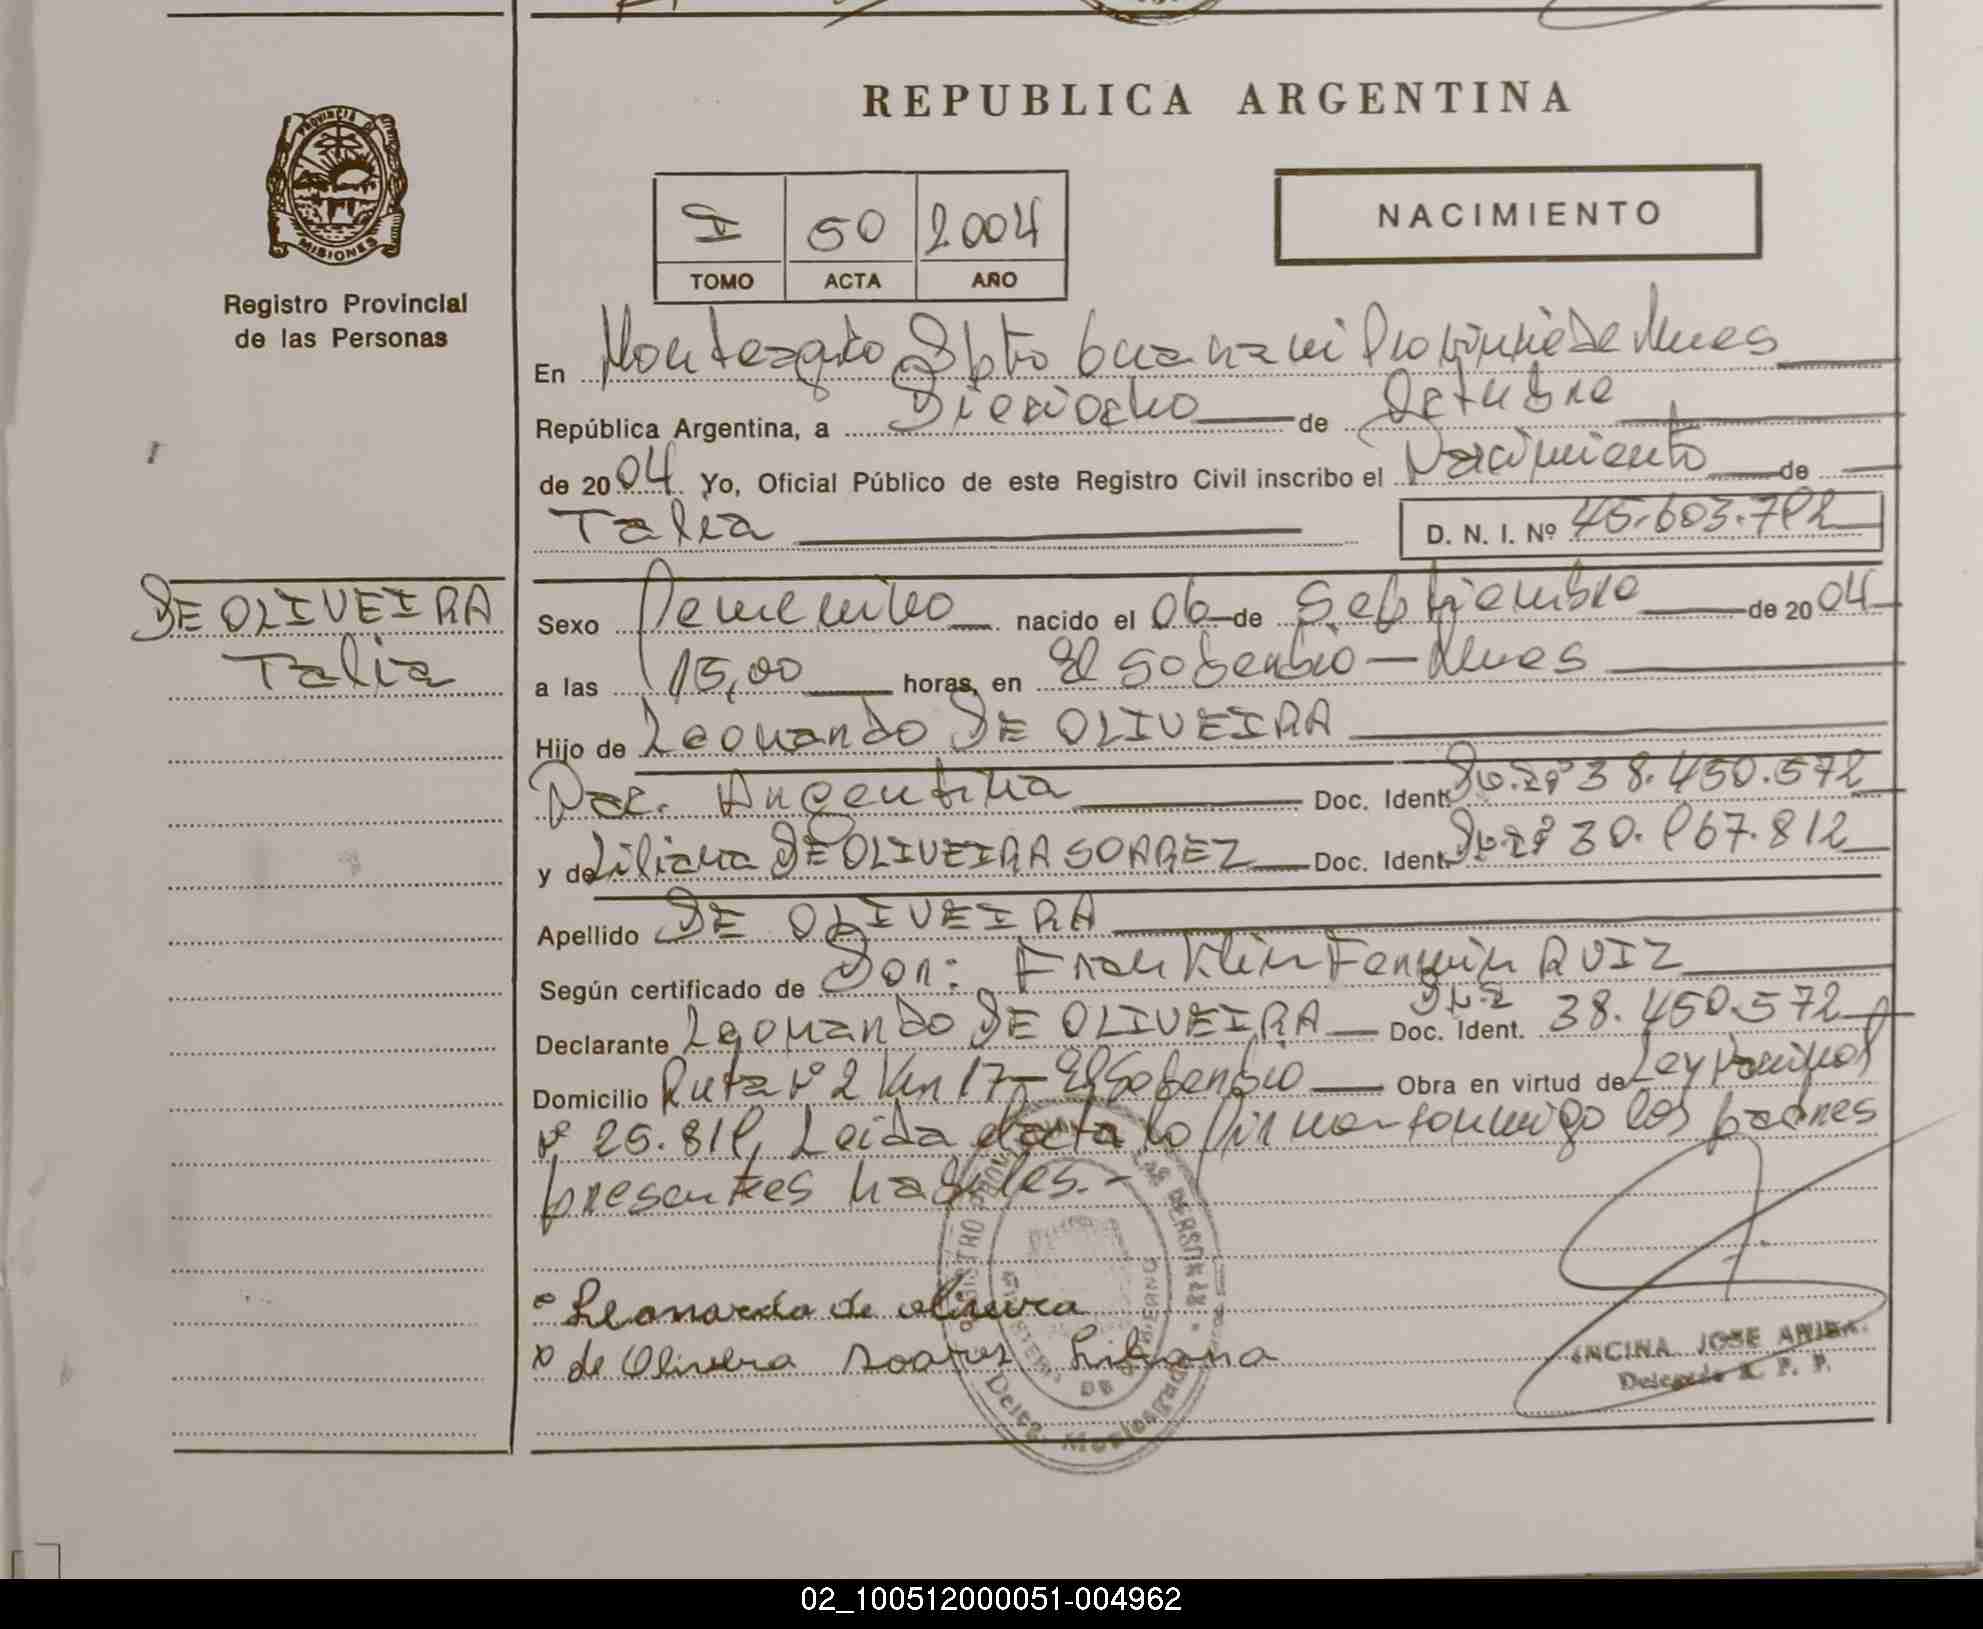 REPUBLICA ARGENTINA
PROVINCIA DE
MISIONES
Registro Provincial
de las Personas
I 50 2004
TOMO ACTA AÑO
NACIMIENTO
En Monteagudo Dpto Guarani Provincia de Mnes
República Argentina, a Dieciocho de Octubre
de 2004 Yo, Oficial Público de este Registro Civil inscribo el Nacimiento de
Talia D. N. I. Nº
DE OLIVEIRA
Talia
Sexo Femenino nacido el 06 de Septiembre de 2004
a las 15,00 horas, en El Soberbio - Mnes
Hijo de Leonardo DE OLIVEIRA
Nac. Argentina Doc. Ident. 38.450.572
y de Liliana DE OLIVEIRA SOAREZ Doc. Ident.
Apellido DE OLIVEIRA
Según certificado de Don: Franklin Fermin RUIZ
Declarante Leonardo DE OLIVEIRA Doc. Ident. 38.450.572
Domicilio Ruta Nº 2 Km 17 - El Soberbio Obra en virtud de Ley
Nº Leida el acta lo firman conmigo los padres
presentes habiles.-
Leonardo de oliveira
x de Olivera Soares Liliana
ENCINA JOSE ANIBAL
Delegado R. P. P.
REGISTRO PROVINCIAL DE LAS PERSONAS
MINISTERIO DE GOBIERNO
Deleg. Monteagudo
02_100512000051-004962